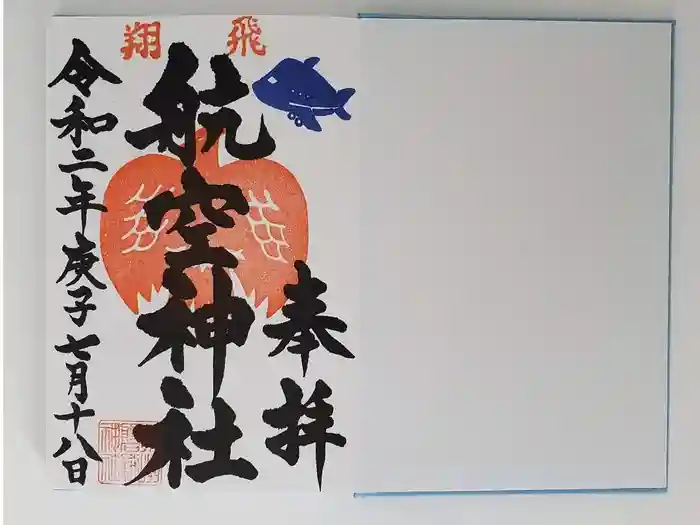 飛翔
奉拝
航空神社
令和二年庚子七月十八日